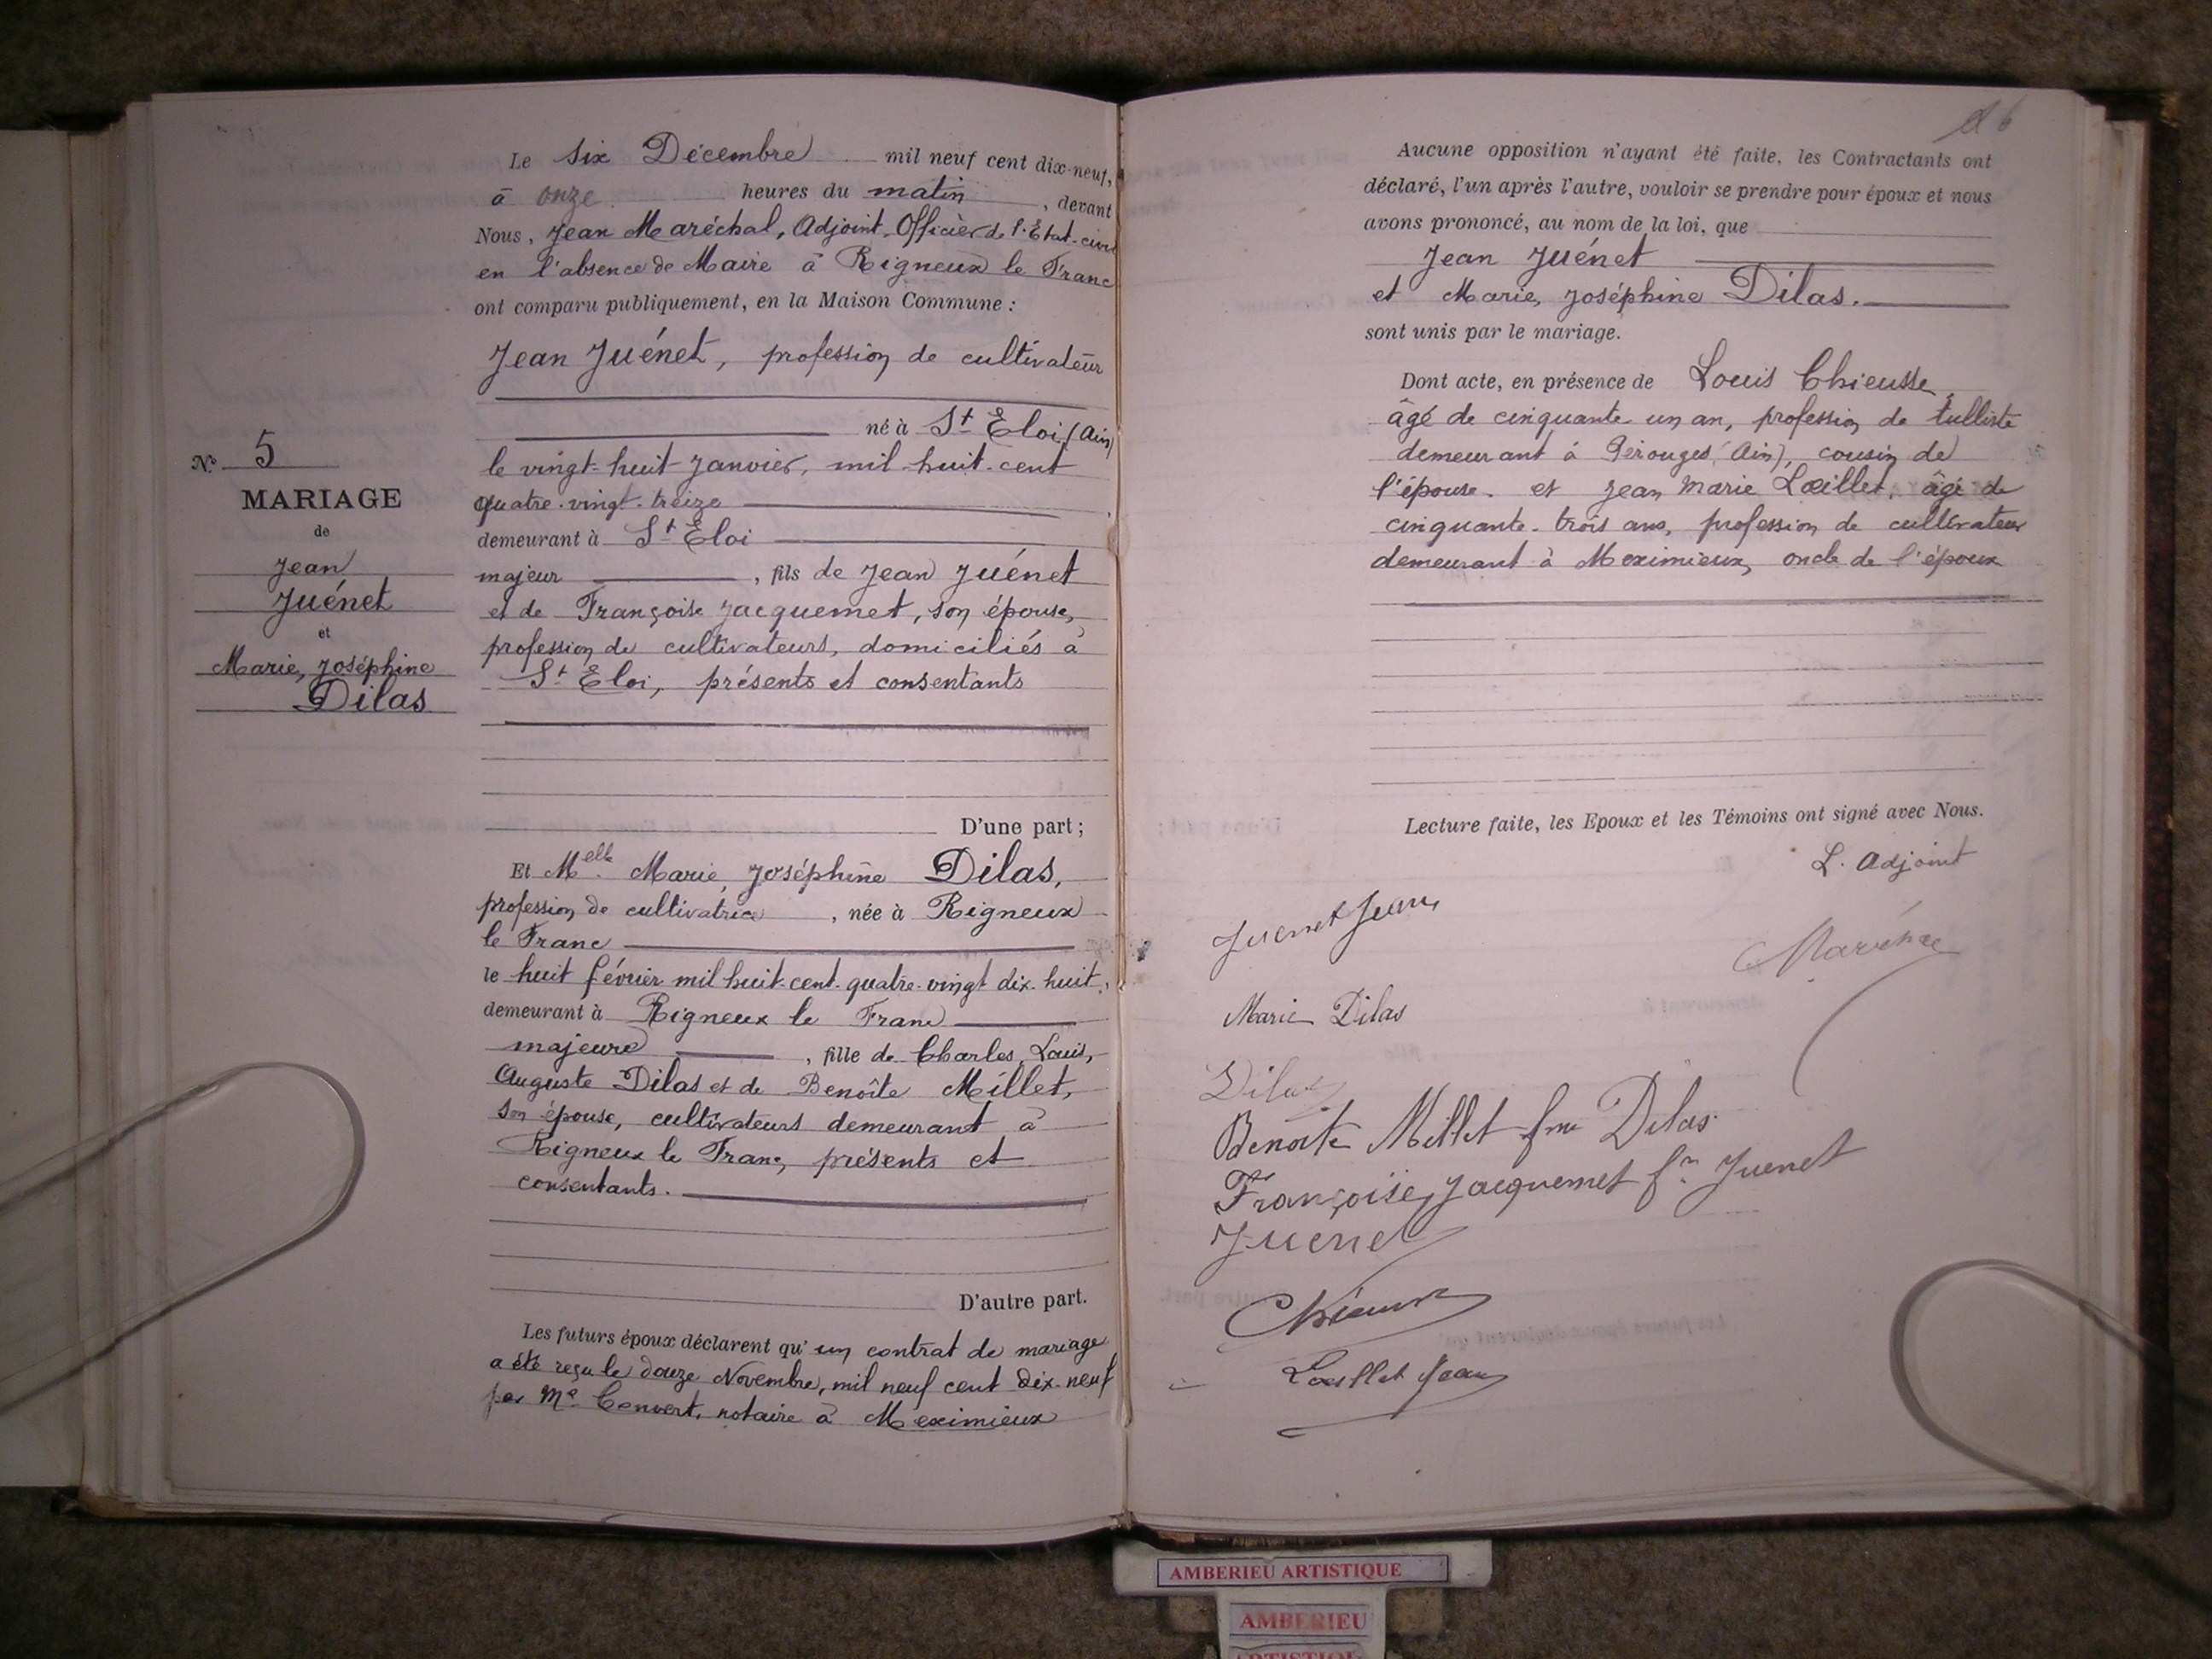 Le six Décembre mil neuf cent dix-neuf,
à onze heures du matin, devant
Nous, Jean Maréchal, Adjoint, Officier de l'Etat-civil
en l'absence de Maire à Rigneux le Franc
ont comparu publiquement, en la Maison Commune :
Jean Juénet, profession de cultivateur
né à St Eloi (Ain)
le vingt-huit Janvier, mil-huit-cent
quatre-vingt-treize
demeurant à St Eloi
majeur, fils de Jean Juénet
et de Françoise Jacquemet, son épouse,
profession de cultivateurs, domiciliés à
St Eloi, présents et consentants
N° 5
MARIAGE
de
Jean
Juénet
et
Marie, Joséphine
Dilas
D'une part ;
Et Melle Marie, Joséphine Dilas,
profession de cultivatrice, née à Rigneux
le Franc
le huit février mil huit-cent-quatre-vingt dix-huit,
demeurant à Rigneux le Franc
majeure, fille de Charles, Louis,
Auguste Dilas et de Benoîte Millet,
son épouse, cultivateurs demeurant à
Rigneux le Franc, présents et
consentants.
D'autre part.
Les futurs époux déclarent qu'un contrat de mariage
a été reçu le douze Novembre, mil neuf cent dix-neuf
par Me Convert, notaire à Meximieux
Aucune opposition n'ayant été faite, les Contractants ont
déclaré, l'un après l'autre, vouloir se prendre pour époux et nous
avons prononcé, au nom de la loi, que
Jean Juénet
et Marie, Joséphine Dilas.
sont unis par le mariage.
Dont acte, en présence de Louis Chieusse,
âgé de cinquante-un an, profession de tulliste
demeurant à Pérouges (Ain), cousin de
l'épouse. et Jean Marie Lœillet, âgé de
cinquante-trois ans, profession de cultivateur
demeurant à Meximieux, oncle de l'époux
Lecture faite, les Epoux et les Témoins ont signé avec Nous.
L. Adjoint
Juenet Jean
Maréchal
Marie Dilas
Dilas
Benoîte Millet fme Dilas
Françoise Jacquemet fe Juenet
Juenet
Lœillet Jean
AMBERIEU ARTISTIQUE
AMBERIEU
ARTISTIQUE